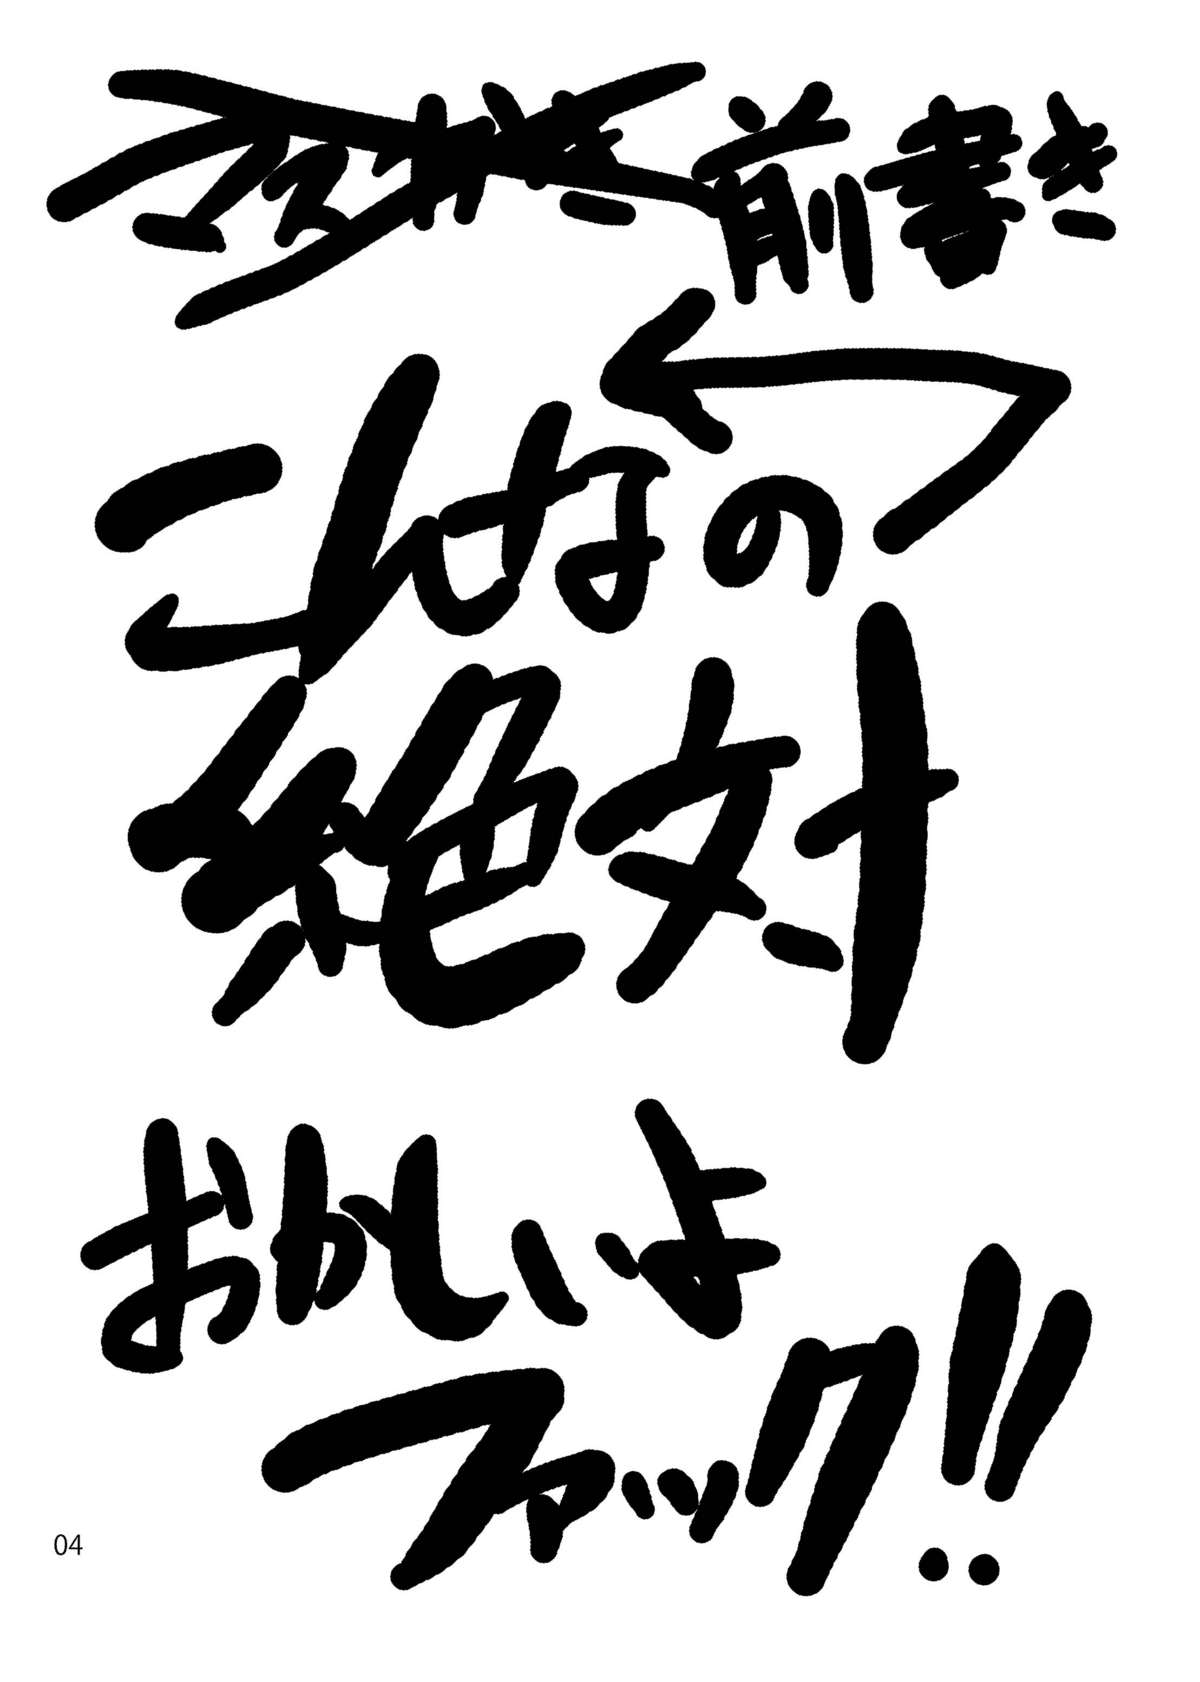 まえがき 前書き
こんなの
絶対
おかしいよ
ファック!!
04